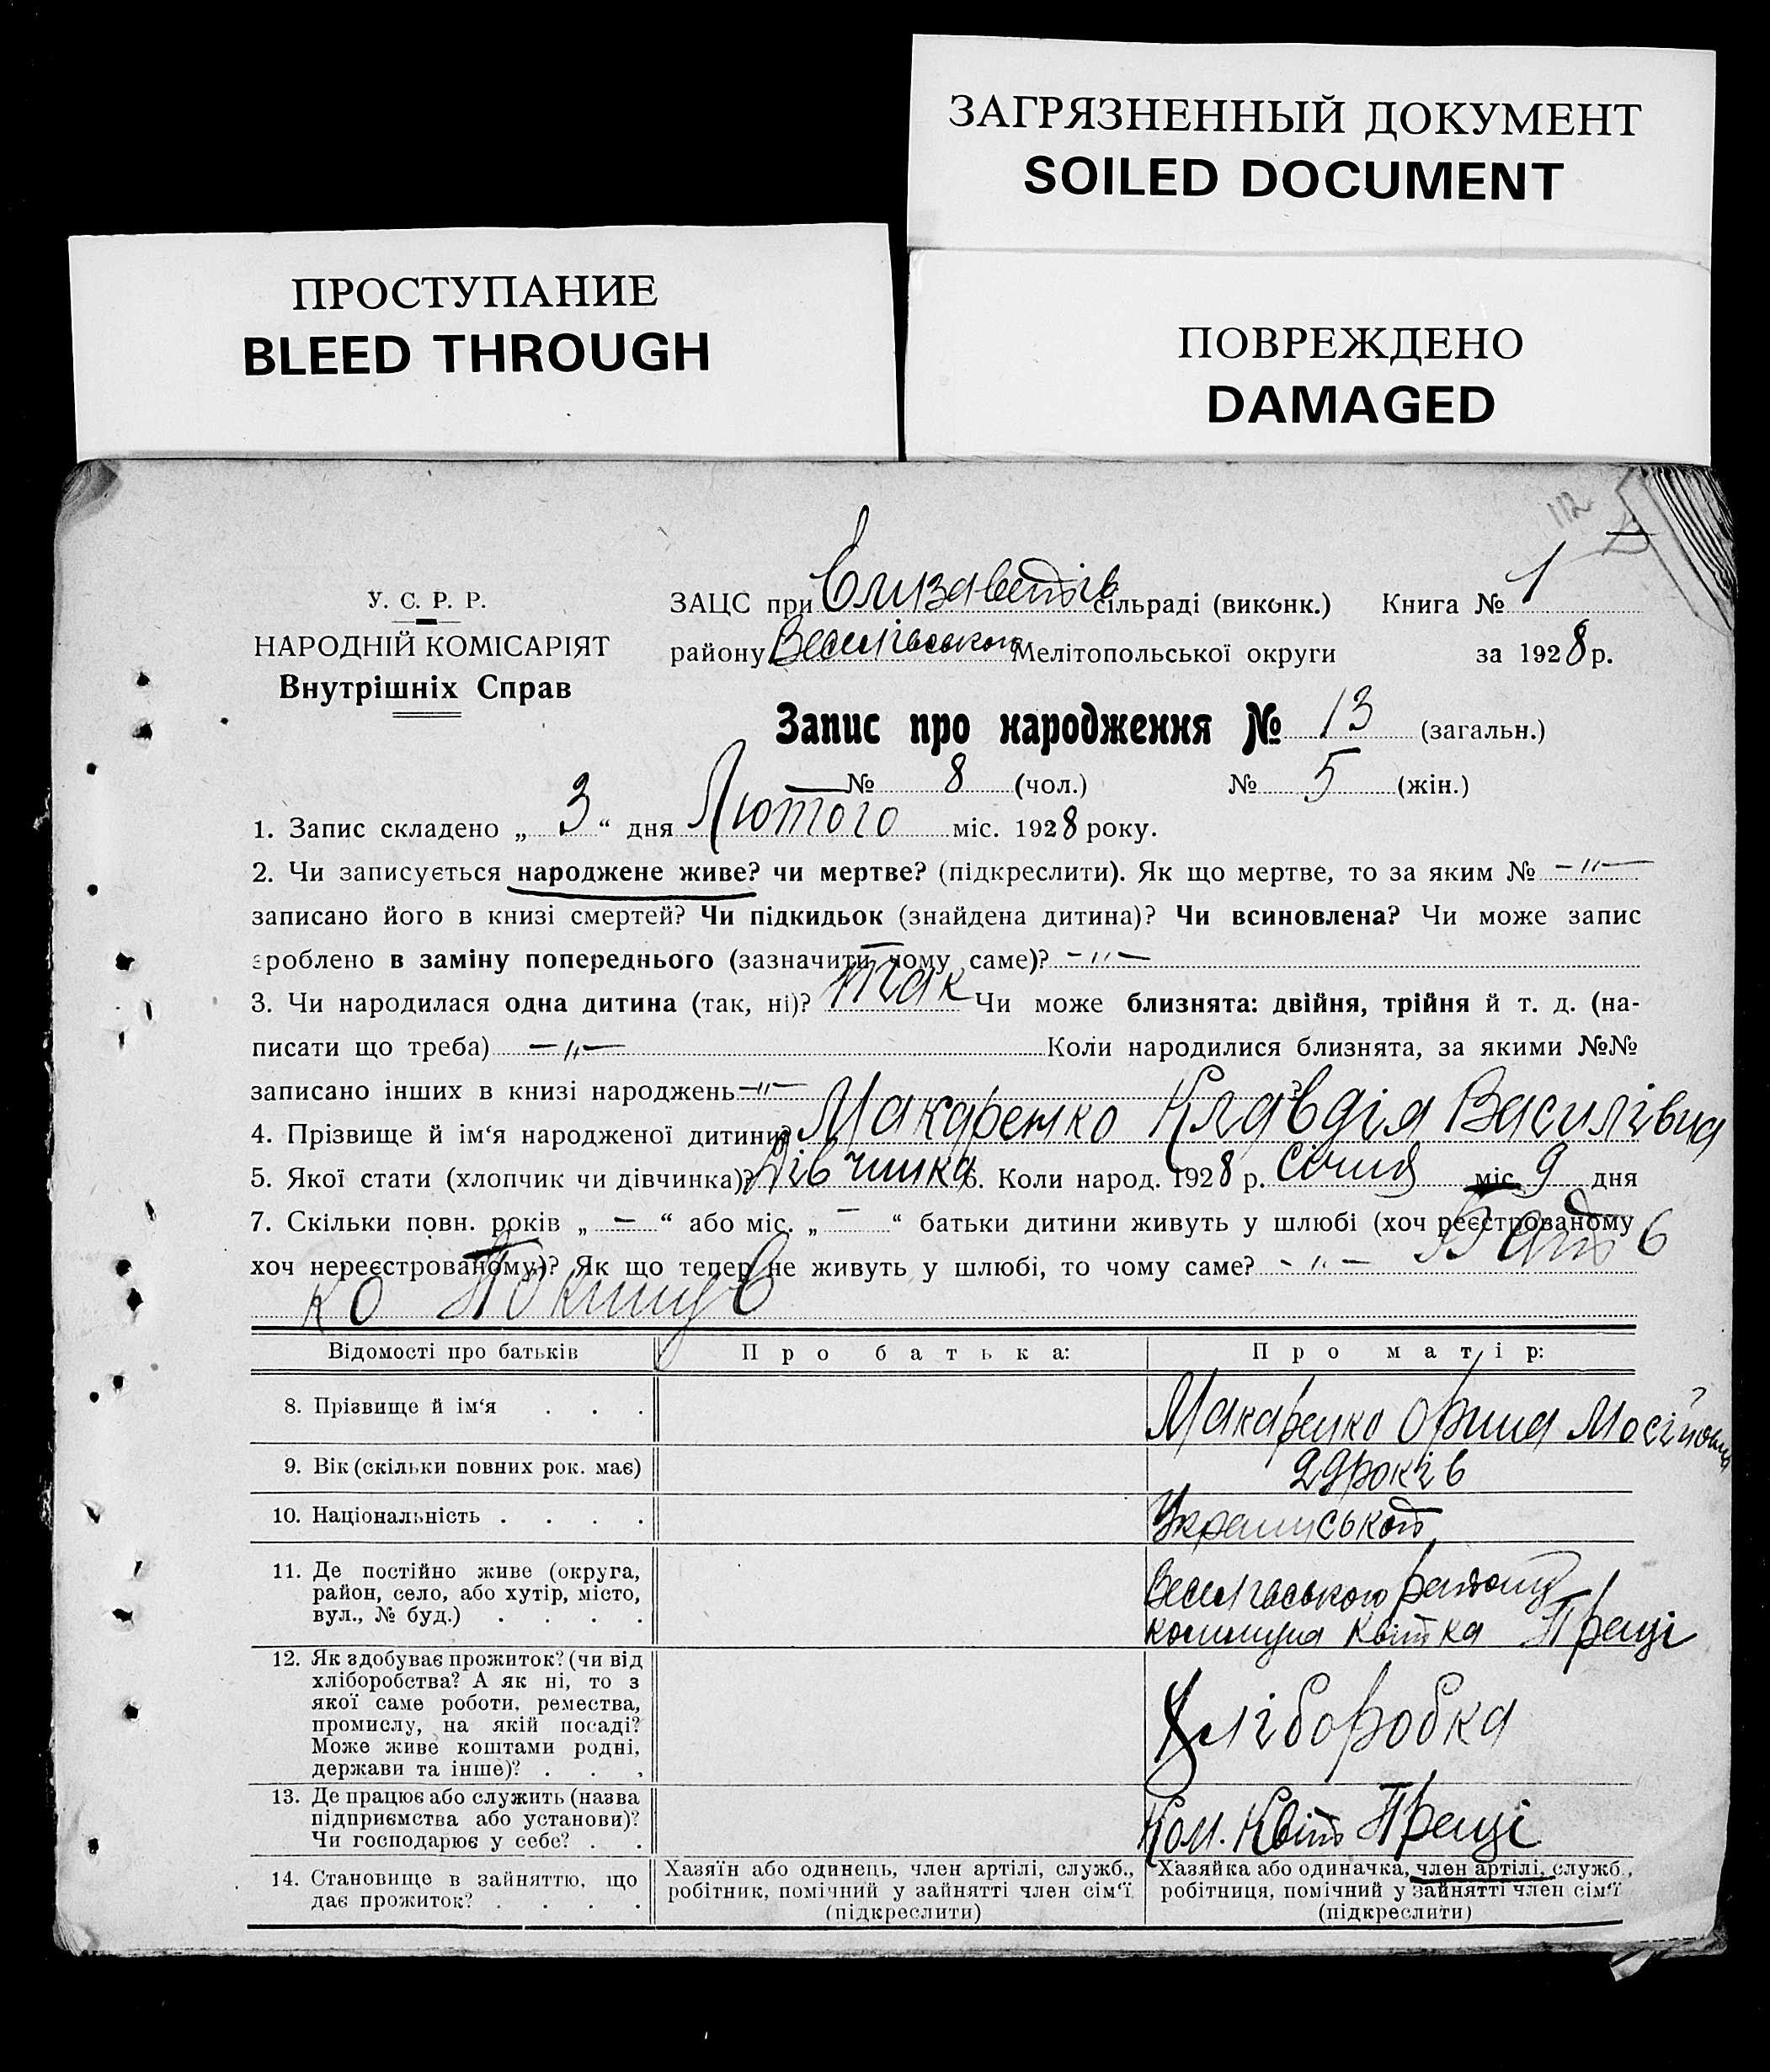 ЗАГРЯЗНЕННЫЙ ДОКУМЕНТ
SOILED DOCUMENT
ПРОСТУПАНИЕ
BLEED THROUGH
ПОВРЕЖДЕНО
DAMAGED
112
У. С. Р. Р.
НАРОДНІЙ КОМІСАРІЯТ
Внутрішніх Справ
ЗАЦС при Єлизаветів сільраді (виконк.) Книга № 1
району Веселівського Мелітопольської округи за 1928 р.
Запис про народження № 13 (загальн.)
№ 8 (чол.) № 5 (жін.)
1. Запис складено „ 3 “ дня Лютого міс. 1928 року.
2. Чи записується народжене живе? чи мертве? (підкреслити). Як що мертве, то за яким № -"-
записано його в книзі смертей? Чи підкидьок (знайдена дитина)? Чи всиновлена? Чи може запис
зроблено в заміну попереднього (зазначити чому саме)? -"-
3. Чи народилася одна дитина (так, ні)? так Чи може близнята: двійня, трійня й т. д. (на-
писати що треба) -"- Коли народилися близнята, за якими №№
записано інших в книзі народжень -"-
4. Прізвище й ім‘я народженої дитини? Макаренко Клавдія Василівна
5. Якої стати (хлопчик чи дівчинка)? Дівчинка 6. Коли народ. 1928 р. січня міс. 9 дня
7. Скільки повн. років „ - “ або міс. „ - “ батьки дитини живуть у шлюбі (хоч реєстрованому
хоч нереєстрованому)? Як що тепер не живуть у шлюбі, то чому саме? -"- Бать
ко Покинув
Відомості про батьків Про батька: Про матір:
8. Прізвище й ім‘я . . . Макаренко Орина Мосійовна
9. Вік (скільки повних рок. має) 29 років
10. Національність . . . . Українська
11. Де постійно живе (округа, район, село, або хутір, місто, вул., № буд.) . . . .
Веселівського району
коммуна Квітка Праці
12. Як здобуває прожиток? (чи від
хліборобства? А як ні, то з
якої саме роботи, ремества,
промислу, на якій посаді?
Може живе коштами родні,
держави та інше)? . . .
Хліборобка
13. Де працює або служить (назва
підприємства або установи)?
Чи господарює у себе? . .
Ком. Квіт Праці
14. Становище в зайняттю, що
дає прожиток? . . . .
Хазяїн або одинець, член артілі, служб.,
робітник, помічний у зайнятті член сім‘ї
(підкреслити)
Хазяйка або одиначка, член артілі, служб.,
робітниця, помічний у зайнятті член сім‘ї
(підкреслити)